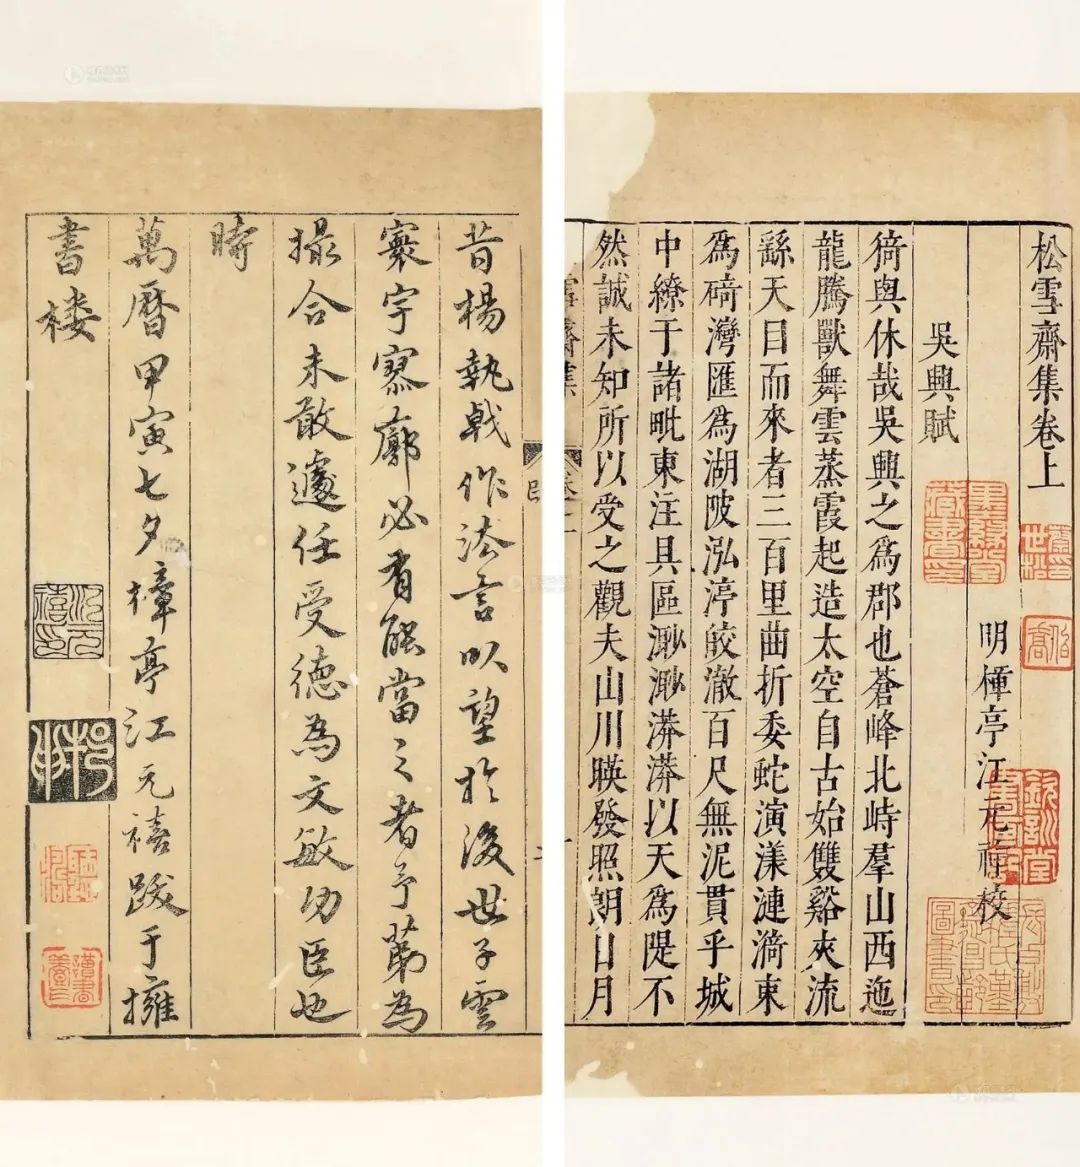 松雪齋集卷上
明樟亭江元禧校
吳興賦
猗與休哉吳興之爲郡也蒼峰北峙羣山西迤
龍騰獸舞雲蒸霞起造太空自古始雙谿夾流
繇天目而來者三百里曲折委蛇演漾漣漪束
爲碕灣匯爲湖陂泓渟皎澈百尺無泥貫乎城
中繚于諸毗東注具區渺渺漭漭以天爲隄不
然誠未知所以受之觀夫山川暎發照朗日月
欽訓堂書畫記
昔楊執戟作法言以望於後世子雲
寥宇寥廓必有能當之者予第為
撮合未敢遽任受德為文敏功臣也
時
萬曆甲寅七夕樟亭江元禧跋于擁
書樓
江元禧印